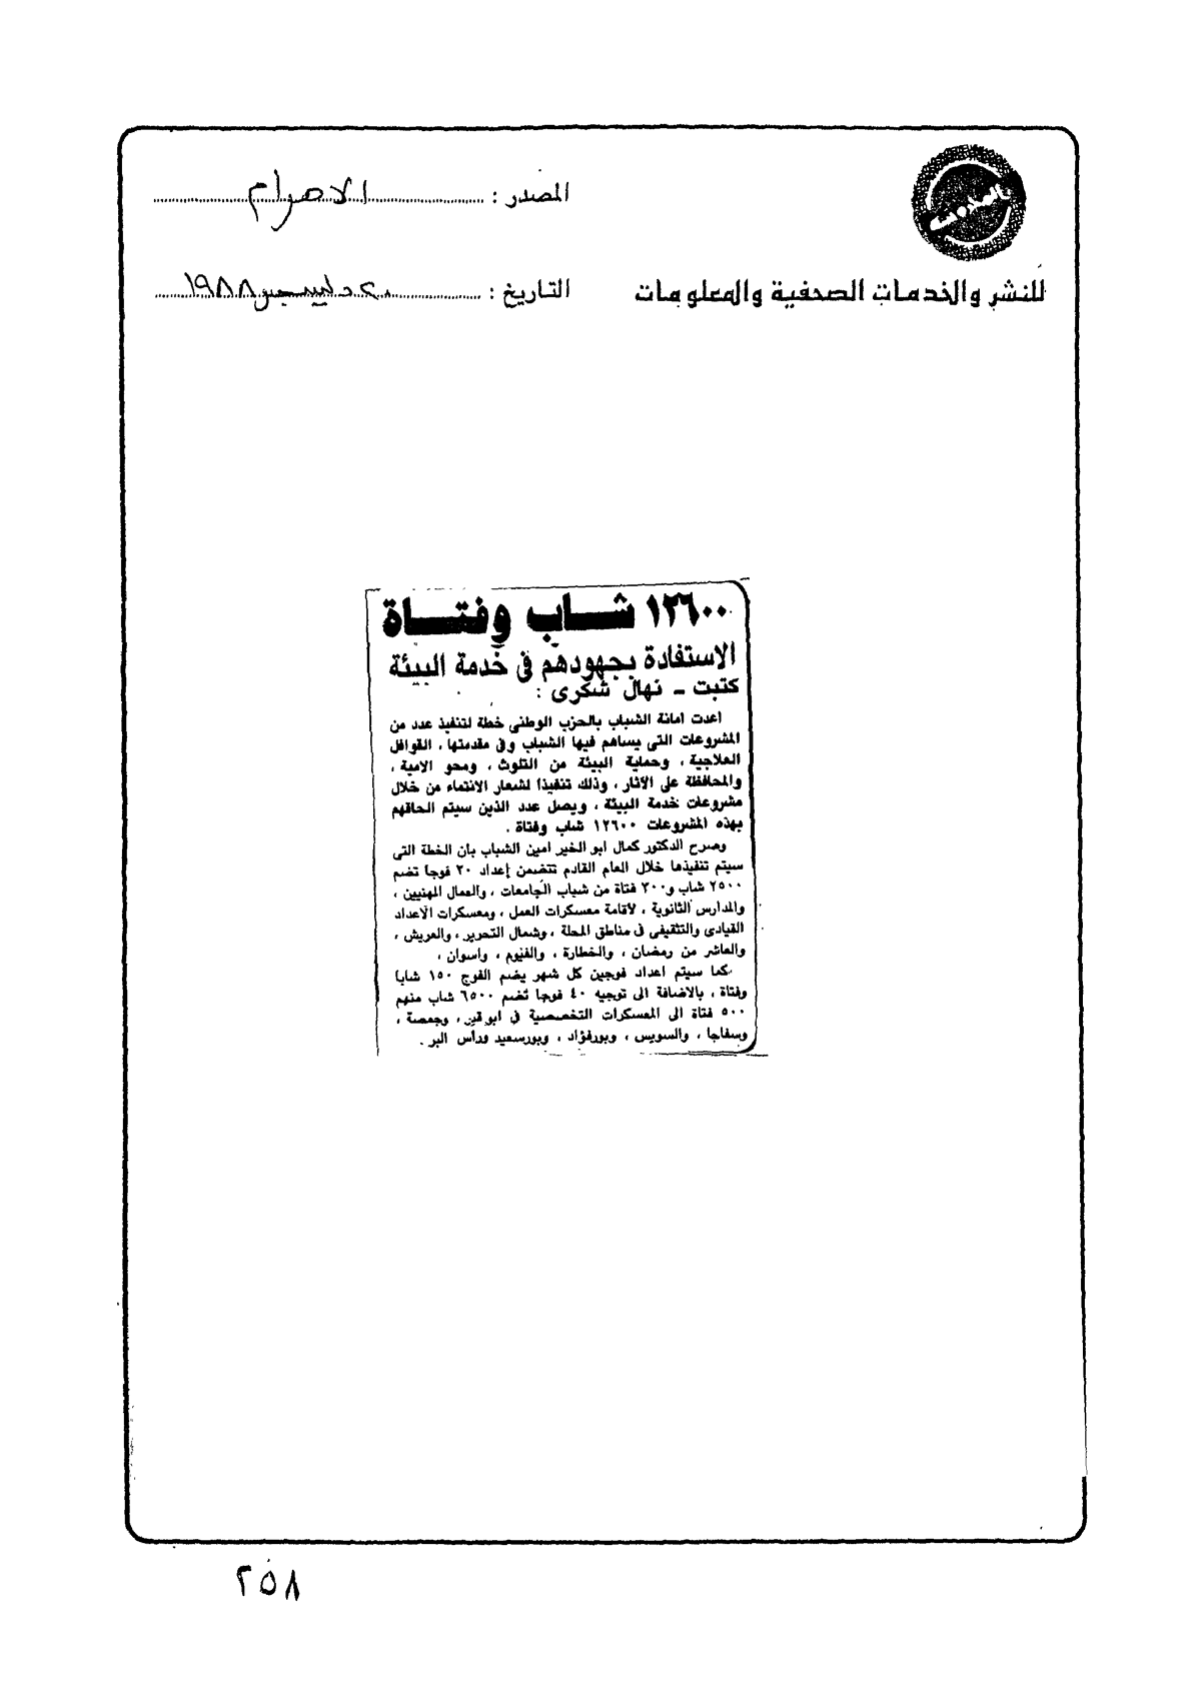 المصدر : الاهرام
للنشر والخدمات الصحفية والمعلومات
التاريخ : ٢٠ ديسمبر ١٩٨٨
١٢٦٠٠ شاب وفتاة
الاستفادة بجهودهم فى خدمة البيئة
كتبت - نهال شكرى :
اعدت امانة الشباب بالحزب الوطنى خطة لتنفيذ عدد من
المشروعات التى يساهم فيها الشباب وفى مقدمتها ، القوافل
العلاجية ، وحماية البيئة من التلوث ، ومحو الامية ،
والمحافظة على الآثار ، وذلك تنفيذا لشعار الانتماء من خلال
مشروعات خدمة البيئة ، ويصل عدد الذين سيتم الحاقهم
بهذه المشروعات ١٢٦٠٠ شاب وفتاة .
وصرح الدكتور كمال ابو الخير امين الشباب بان الخطة التى
سيتم تنفيذها خلال العام القادم تتضمن إعداد ٢٠ فوجا تضم
٢٥٠٠ شاب و٣٠٠ فتاة من شباب الجامعات ، والعمال المهنيين ،
والمدارس الثانوية ، لأقامة معسكرات العمل ، ومعسكرات الاعداد
القيادى والتثقيفى فى مناطق المحلة ، وشمال التحرير ، والعريش ،
والعاشر من رمضان ، والخطارة ، والفيوم ، واسوان ،
كما سيتم اعداد فوجين كل شهر يضم الفوج ١٥٠ شابا
وفتاة ، بالاضافة الى توجيه ٤٠ فوجا تضم ٦٥٠٠ شاب منهم
٥٠٠ فتاة الى المعسكرات التخصصية فى ابوقير ، وجمصة ،
وسفاجا ، والسويس ، وبورفؤاد ، وبورسعيد ورأس البر .
٢٥٨